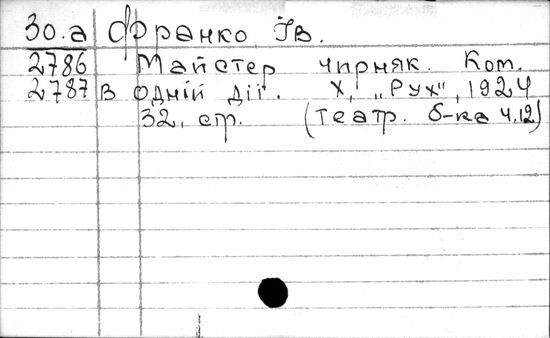 30.а Франко Ів.
2786 Майстер чирняк. Ком.
2787 в одній дії. Х, „Рух", 1924
32, стр. (театр. б-ка ч.12)